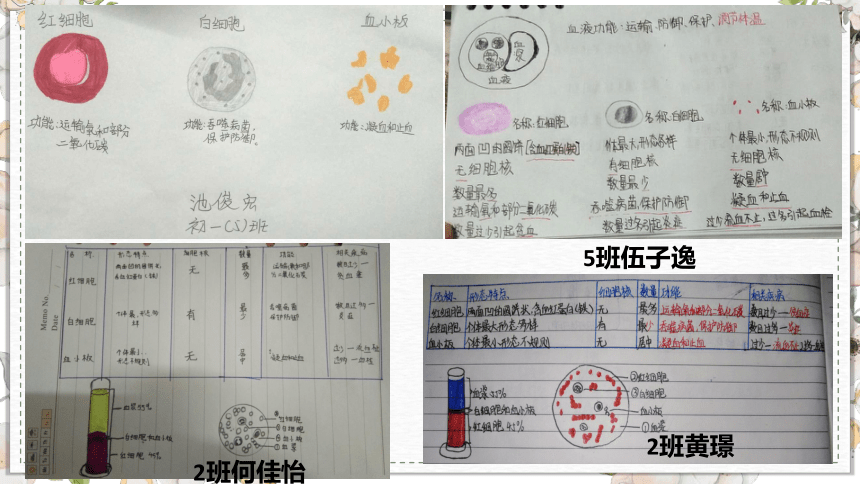 红细胞
白细胞
血小板
功能:运输氧和部分
二氧化碳
功能:吞噬病菌,
保护防御。
功能:凝血和止血
池俊宏
初一(5)班
血液功能:运输、防御、保护、调节体温
血浆
血细胞
血液
名称:红细胞
名称:白细胞
名称:血小板
两面凹的圆饼
无细胞核
数量最多
运输氧和部分二氧化碳
数量过少引起贫血
个体最大,形态多样
有细胞核
数量最少
吞噬病菌,保护防御
数量过多引起炎症
个体最小,形态不规则
无细胞核
凝血和止血
过少流血不止,过多引起血栓
5班伍子逸
Memo No.
Date
形态特点
细胞核
数量
功能
红细胞
无
最多
白细胞
有
最少
吞噬病菌
保护防御
血小板
个体最小,
形态不规则
无
居中
凝血和止血
血浆55%
白细胞和血小板
红细胞
白细胞
血小板
血浆
2班何佳怡
名称
形态特点
细胞核
数量
功能
相关疾病
红细胞
两面凹的圆饼状,含血红蛋白(铁)
无
最多
运输氧和部分二氧化碳
白细胞
个体最大,形态多样
有
最少
吞噬病菌,保护防御
血小板
个体最小,形态不规则
无
居中
凝血和止血
血浆55%
白细胞和血小板
红细胞45%
红细胞
白细胞
血小板
①血浆
2班黄璟